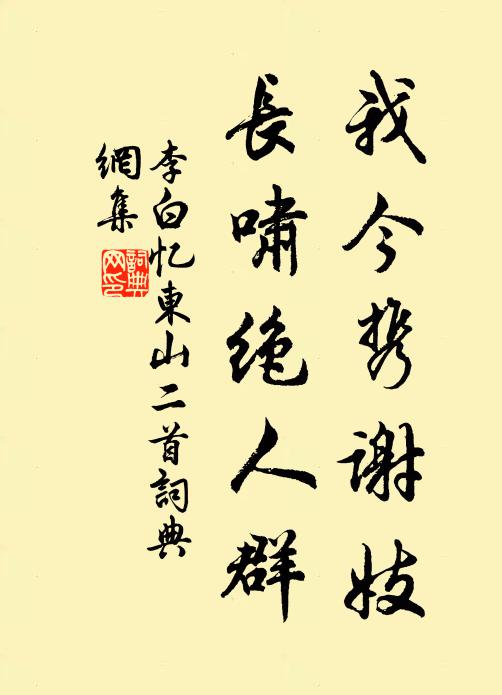 我今携谢妓
長嘯绝人群
李白忆東山二首詞典
網集
詞典
网印